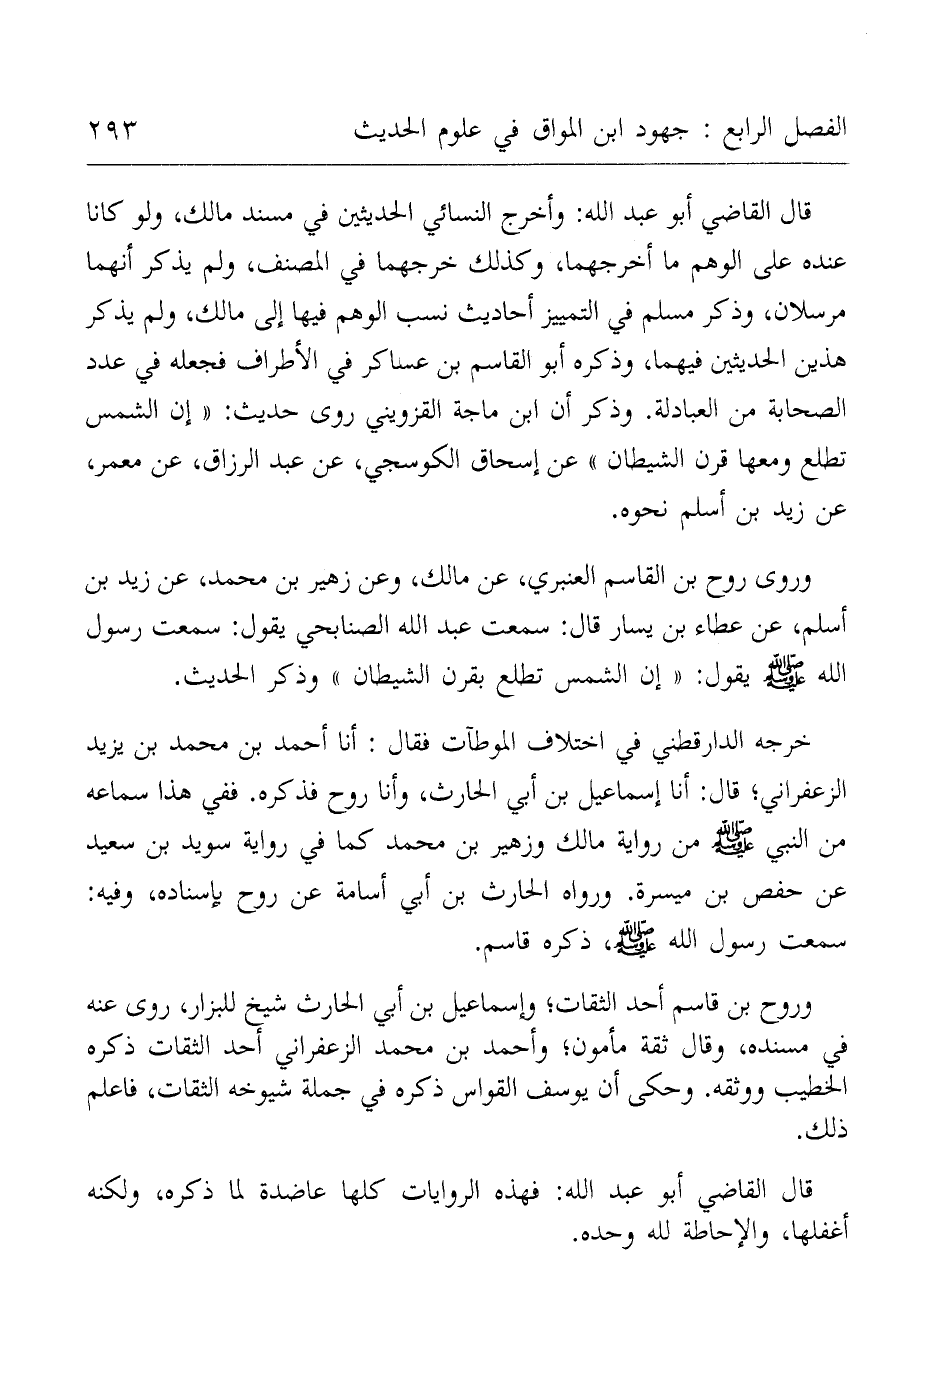 الفصل الرابع : جهود ابن المواق في علوم الحديث ٢٩٣
قال القاضي أبو عبد الله: وأخرج النسائي الحديثين في مسند مالك، ولو كانا
عنده على الوهم ما أخرجهما، وكذلك خرجهما في المصنف، ولم يذكر أنهما
مرسلان، وذكر مسلم في التمييز أحاديث نسب الوهم فيها إلى مالك، ولم يذكر
هذين الحديثين فيهما، وذكره أبو القاسم بن عساكر في الأطراف فجعله في عدد
الصحابة من العبادلة. وذكر أن ابن ماجة القزويني روى حديث: « إن الشمس
تطلع ومعها قرن الشيطان » عن إسحاق الكوسجي، عن عبد الرزاق، عن معمر،
عن زيد بن أسلم نحوه.
وروى روح بن القاسم العنبري، عن مالك، وعن زهير بن محمد، عن زيد بن
أسلم، عن عطاء بن يسار قال: سمعت عبد الله الصنابحي يقول: سمعت رسول
الله ﷺ يقول: « إن الشمس تطلع بقرن الشيطان » وذكر الحديث.
خرجه الدارقطني في اختلاف الموطآت فقال : أنا أحمد بن محمد بن يزيد
الزعفراني؛ قال: أنا إسماعيل بن أبي الحارث، وأنا روح فذكره. ففي هذا سماعه
من النبي ﷺ من رواية مالك وزهير بن محمد كما في رواية سويد بن سعيد
عن حفص بن ميسرة. ورواه الحارث بن أبي أسامة عن روح بإسناده، وفيه:
سمعت رسول الله ﷺ، ذكره قاسم.
وروح بن قاسم أحد الثقات؛ وإسماعيل بن أبي الحارث شيخ للبزار، روى عنه
في مسنده، وقال ثقة مأمون؛ وأحمد بن محمد الزعفراني أحد الثقات ذكره
الخطيب ووثقه. وحكى أن يوسف القواس ذكره في جملة شيوخه الثقات، فاعلم
ذلك.
قال القاضي أبو عبد الله: فهذه الروايات كلها عاضدة لما ذكره، ولكنه
أغفلها، والإحاطة لله وحده.